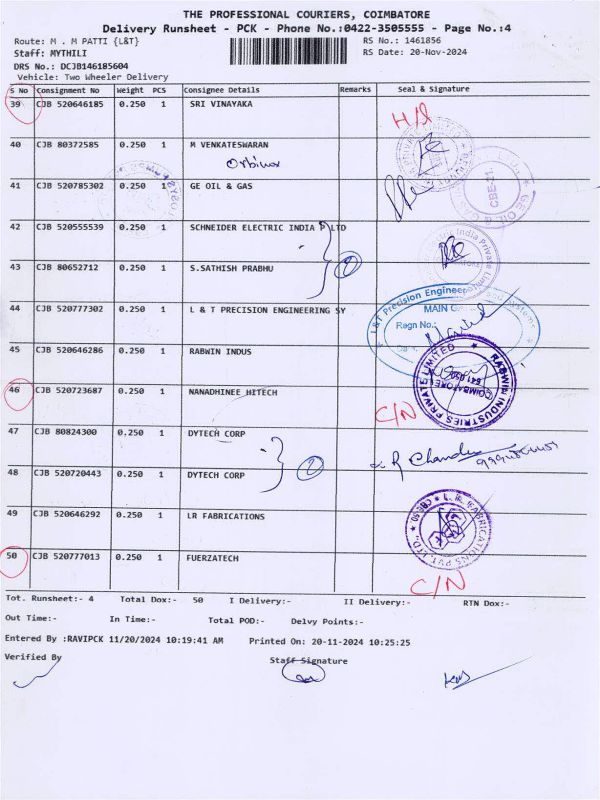 THE PROFESSIONAL COURIERS, COIMBATORE
Delivery Runsheet - PCK - Phone No.:0422-3505555 - Page No.:4
Route: M . M PATTI {L&T} RS No.: 1461856
Staff: MYTHILI RS Date: 20-Nov-2024
DRS No.: DCJB146185604
Vehicle: Two Wheeler Delivery
S No Consignment No Weight PCS Consignee Details Remarks Seal & Signature
39 CJB 520646185 0.250 1 SRI VINAYAKA
40 CJB 80372585 0.250 1 M VENKATESWARAN
41 CJB 520785302 0.250 1 GE OIL & GAS
CBE-21
GE OIL &
42 CJB 520555539 0.250 1 SCHNEIDER ELECTRIC INDIA P LTD
India Private Limi
43 CJB 80652712 0.250 1 S.SATHISH PRABHU
2
44 CJB 520777302 0.250 1 L & T PRECISION ENGINEERING SY
L&T Precision Engineering and Systems
MAIN
Regn No.:
45 CJB 520646286 0.250 1 RABWIN INDUS
RABWIN INDUSTRIES PRIVATE LIMITED
COIMBATORE
46 CJB 520723687 0.250 1 NANADHINEE HITECH
C/N
47 CJB 80824300 0.250 1 DYTECH CORP
R Chandru
48 CJB 520720443 0.250 1 DYTECH CORP
2
49 CJB 520646292 0.250 1 LR FABRICATIONS
L.R. FABRICATIONS PVT. LTD.
50 CJB 520777013 0.250 1 FUERZATECH
C/N
Tot. Runsheet:- 4 Total Dox:- 50 I Delivery:- II Delivery:- RTN Dox:-
Out Time:- In Time:- Total POD:- Delvy Points:-
Entered By :RAVIPCK 11/20/2024 10:19:41 AM Printed On: 20-11-2024 10:25:25
Verified By Staff Signature